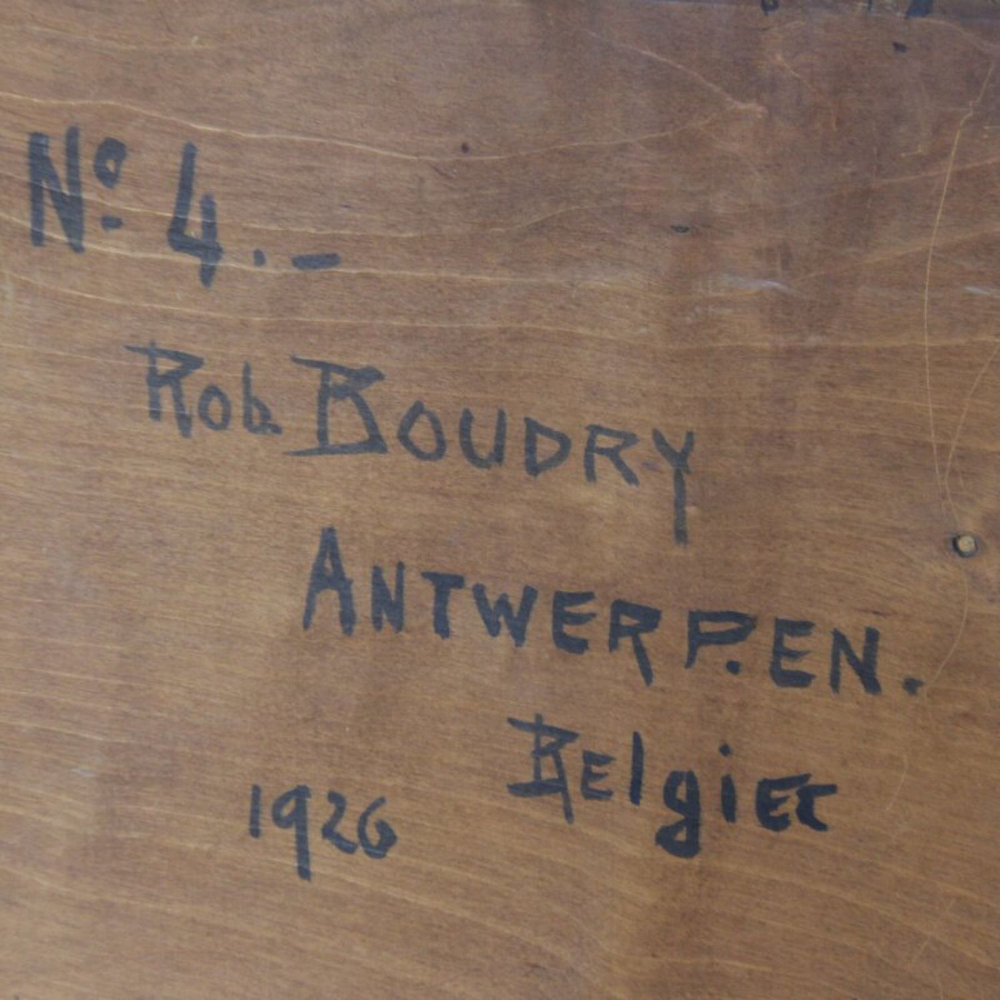 Nº 4.-
Rob. BOUDRY
ANTWERP.EN.
BElgiEE
1926